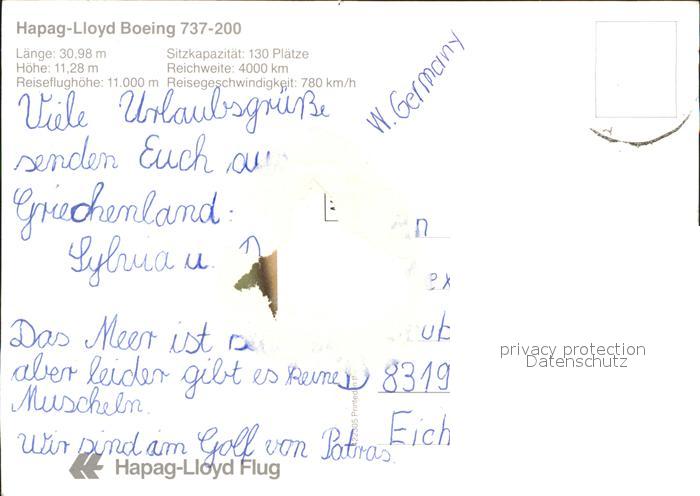 Hapag-Lloyd Boeing 737-200
Länge: 30,98 m Sitzkapazität: 130 Plätze
Höhe: 11,28 m Reichweite: 4000 km
Reiseflughöhe: 11.000 m Reisegeschwindigkeit: 780 km/h
W. Germany
Viele Urlaubsgrüße
senden Euch aus
Griechenland:
Sylvia u.
Das Meer ist
aber leider gibt es keine
Muscheln.
Wir sind am Golf von Patras.
8319
Eich
privacy protection
Datenschutz
Hapag-Lloyd Flug